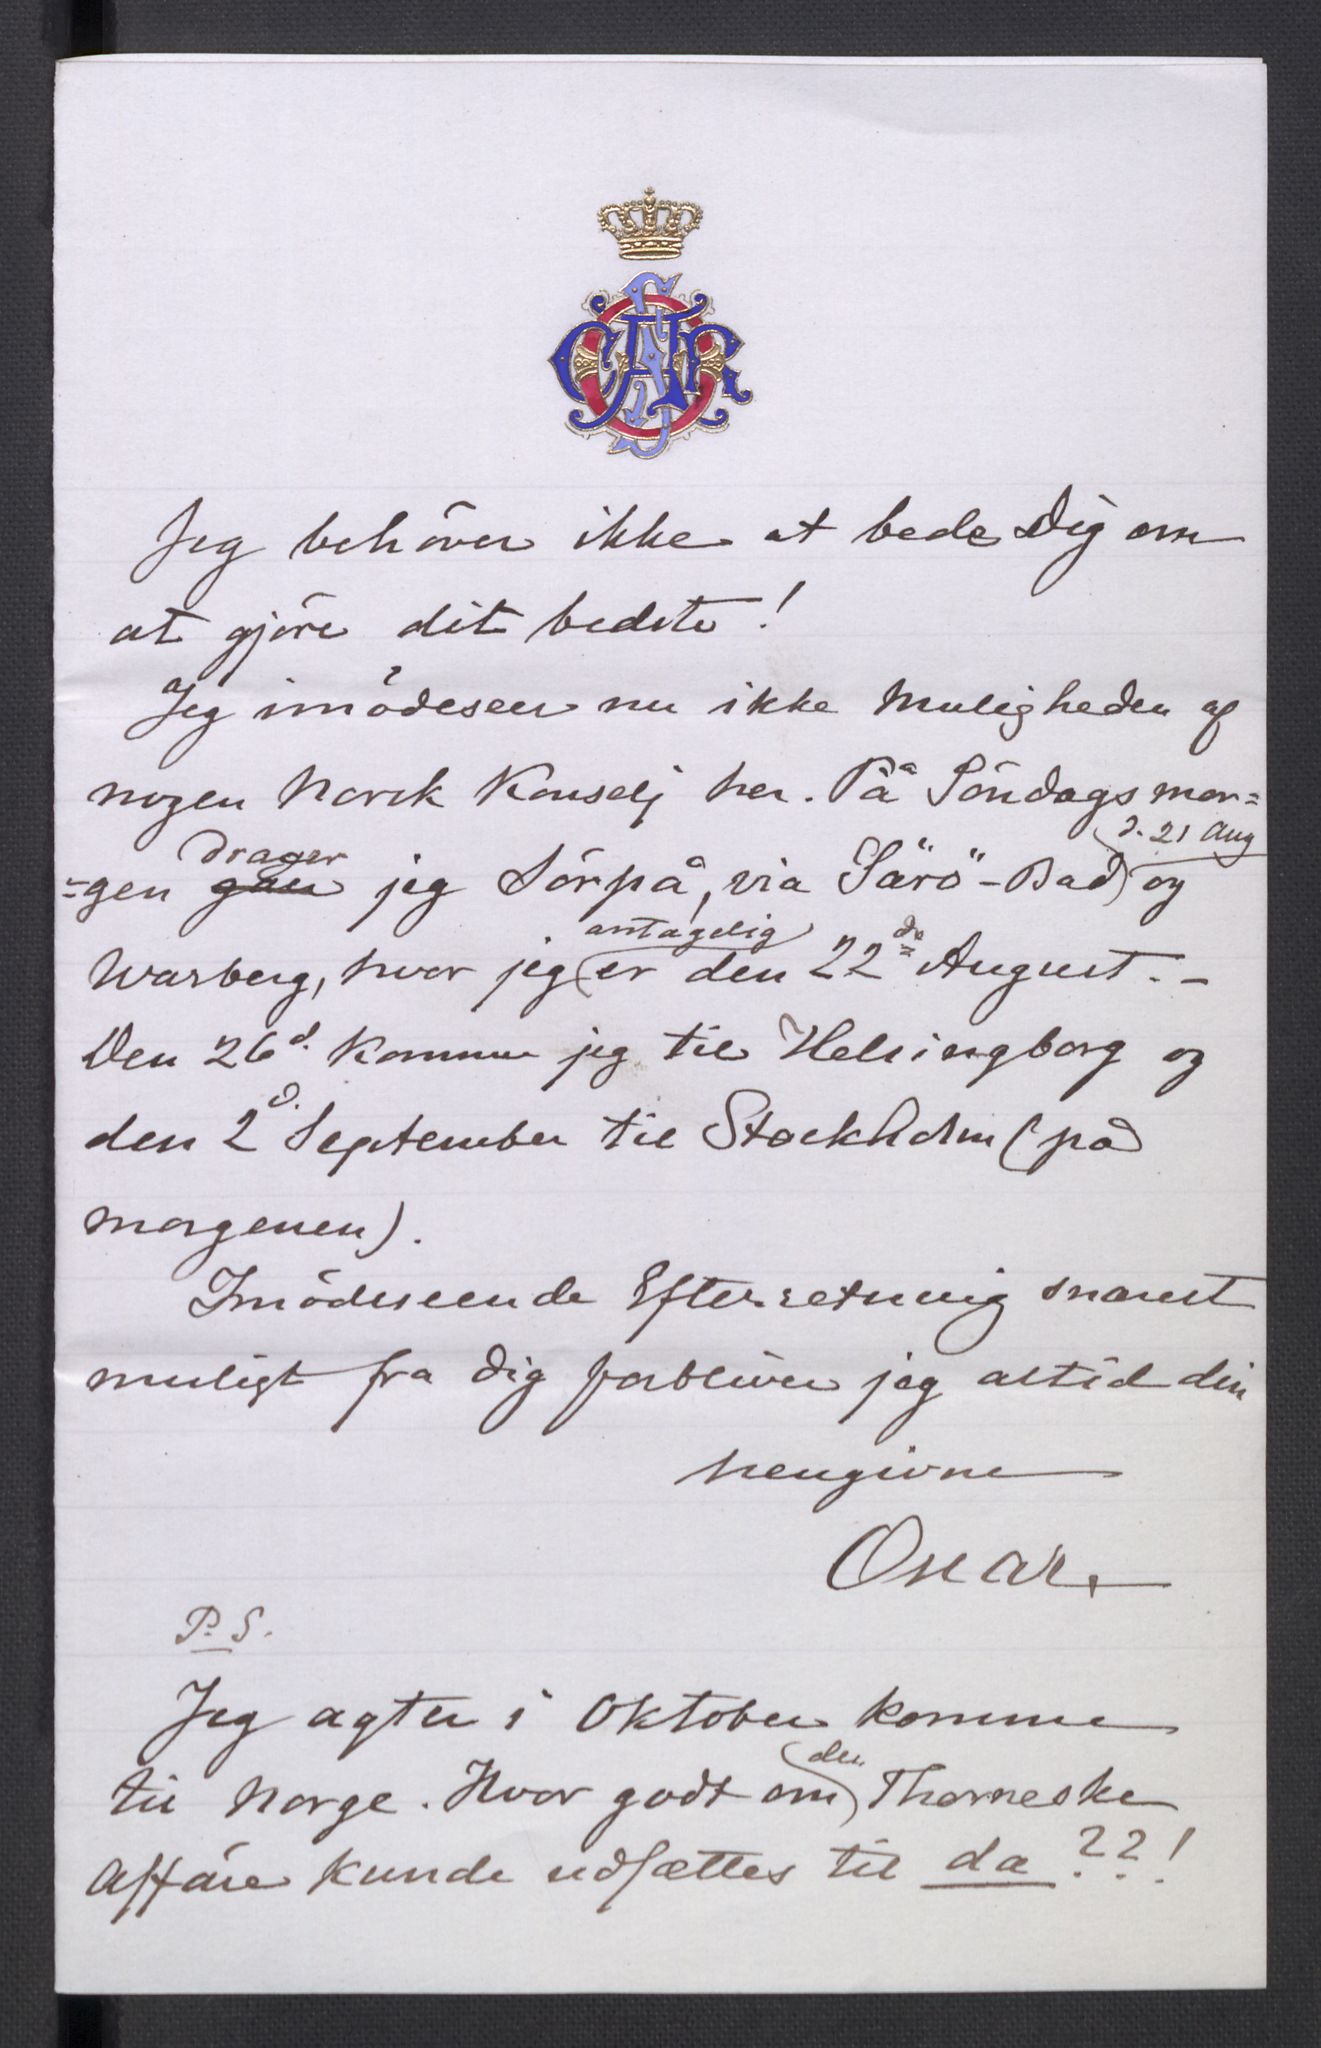 Jeg behöver ikke at bede Dig om
at gjöre dit bedste!
Jeg imödeseer nu ikke Muligheden af
nogen Norsk Konselj her. På Söndags mor=
d. 21 Aug
drager
=gen jeg Sörpå, via Särö-Bad og
antagelig
Warberg, hvor jeg er den 22de August.-
Den 26d. kommer jeg til Helsingborg og
den 2d. September til Stockholm (på
morgenen).
Imödeseende Efterretning snarest
muligt fra Dig forbliver jeg altid din
hengivne
Oscar.
P.S.
Jeg agter i Oktober komme
den
til Norge. Hvor godt om Thorneske
Affäre kunde udsættes til da??!